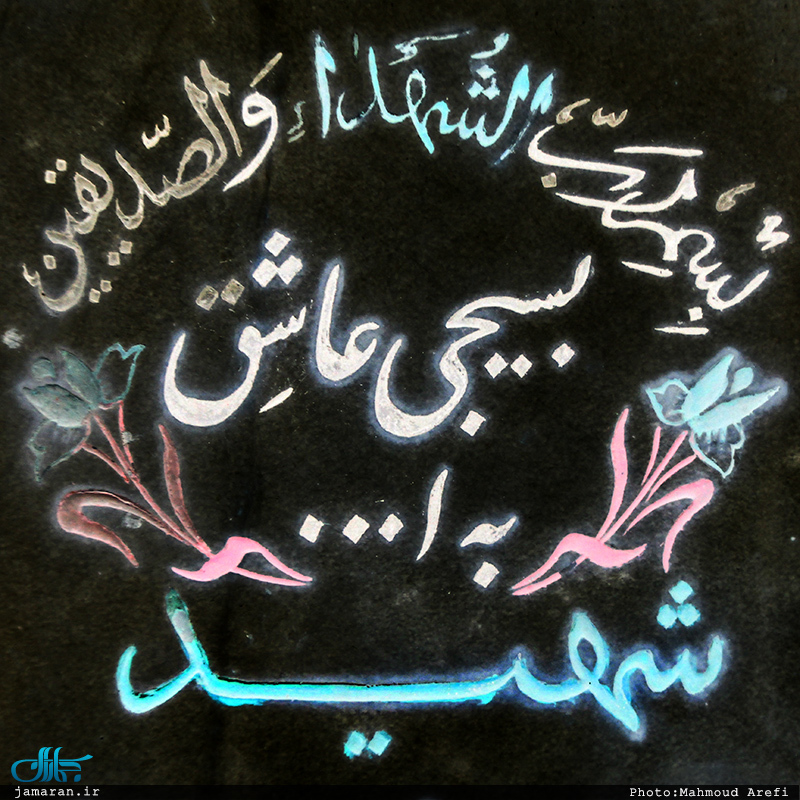 بِسْمِ رَبِّ الشُهَدٰاءِ وَالصِّدیقینَ
بسیجی عاشق
به ا....
شهید
جماران
jamaran.ir
Photo:Mahmoud Arefi